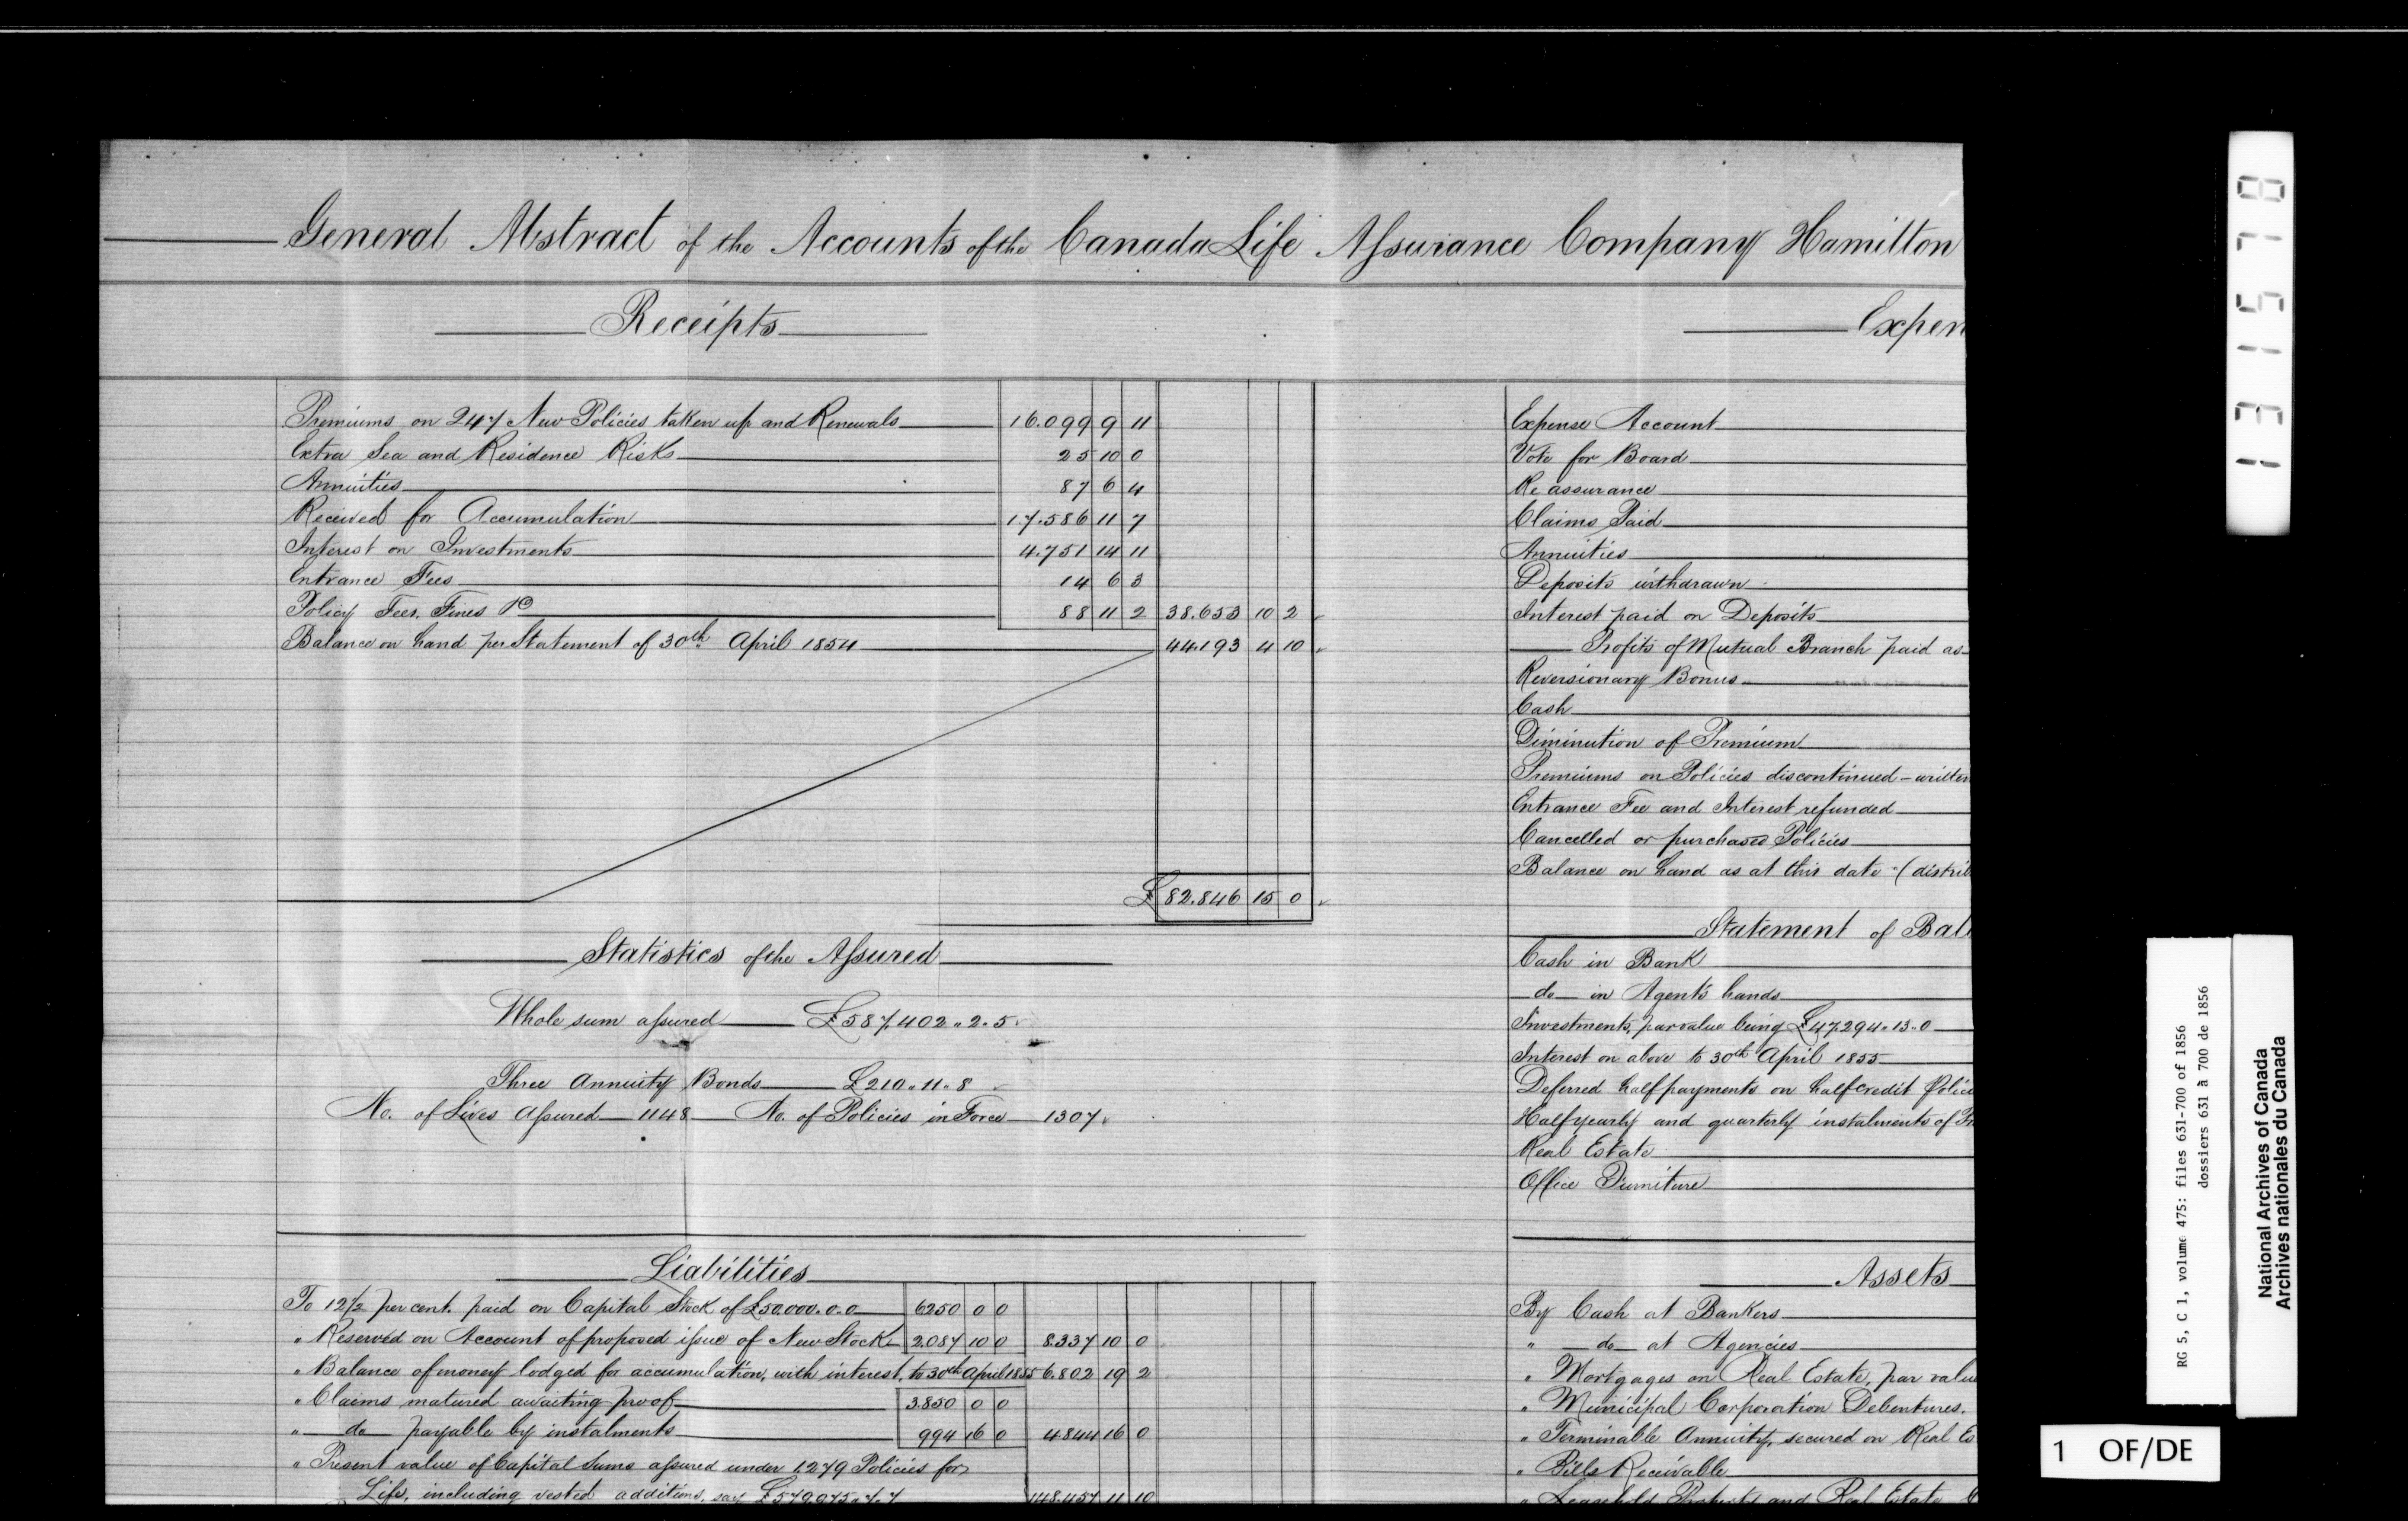 General Abstract of the Accounts of the Canada Life Assurance Company Hamilton
Receipts
Premiums on 247 New Policies taken up and Renewals 16.099 9 11
Extra Sea and Residence Risks 25 10 0
Annuities 87 6 4
Received for Accumulation 17.586 11 7
Interest on Investments 4.751 14 11
Entrance Fees 14 6 3
Policy Fees, Fines &c 88 11 2 38.653 10 2
Balance on hand per Statement of 30th April 1854 44.193 4 10
£ 82.846 15 0
Statistics of the Assured
Whole sum assured £587.402.. 2.. 5
Three Annuity Bonds £210.. 11.. 8
No. of Lives Assured 1148 No. of Policies in Force 1307
Liabilities
To 12½ per cent. paid on Capital Stock of £50,000.0.0 6250 0 0
" Reserved on Account of proposed issue of New Stock 2.087 10 0 8.337 10 0
" Balance of money lodged for accumulation, with interest, to 30th April 1855 6.802 19 2
" Claims matured awaiting proof 3.850 0 0
" do payable by instalments 994 16 0 4844 16 0
" Present value of Capital Sums assured under 1.279 Policies for
Life, including vested additions, say £579.075.. 7.. 7 148.457 11 10
Expen
Expense Account
Vote for Board
Re assurance
Claims Paid
Annuities
Deposits withdrawn
Interest paid on Deposits
Profits of Mutual Branch paid as
Reversionary Bonus
Cash
Diminution of Premium
Premiums on Policies discontinued – written
Entrance Fee and Interest refunded
Cancelled or purchased Policies
Balance on hand as at this date (distrib
Statement of Bal
Cash in Bank
do in Agent's hands
Investments, par value being £47.294.. 13.. 0
Interest on above to 30th April 1855
Deferred half payments on half credit Polici
Half yearly and quarterly instalments of Pr
Real Estate
Office Furniture
Assets
By Cash at Bankers
" do at Agencies
" Mortgages on Real Estate, par value
" Municipal Corporation Debentures.
" Terminable Annuity, secured on Real Es
" Bills Receivable
" Leasehold Property and Real Estate
131578
RG 5, C 1, volume 475: files 631-700 of 1856
dossiers 631 à 700 de 1856
National Archives of Canada
Archives nationales du Canada
1 OF/DE